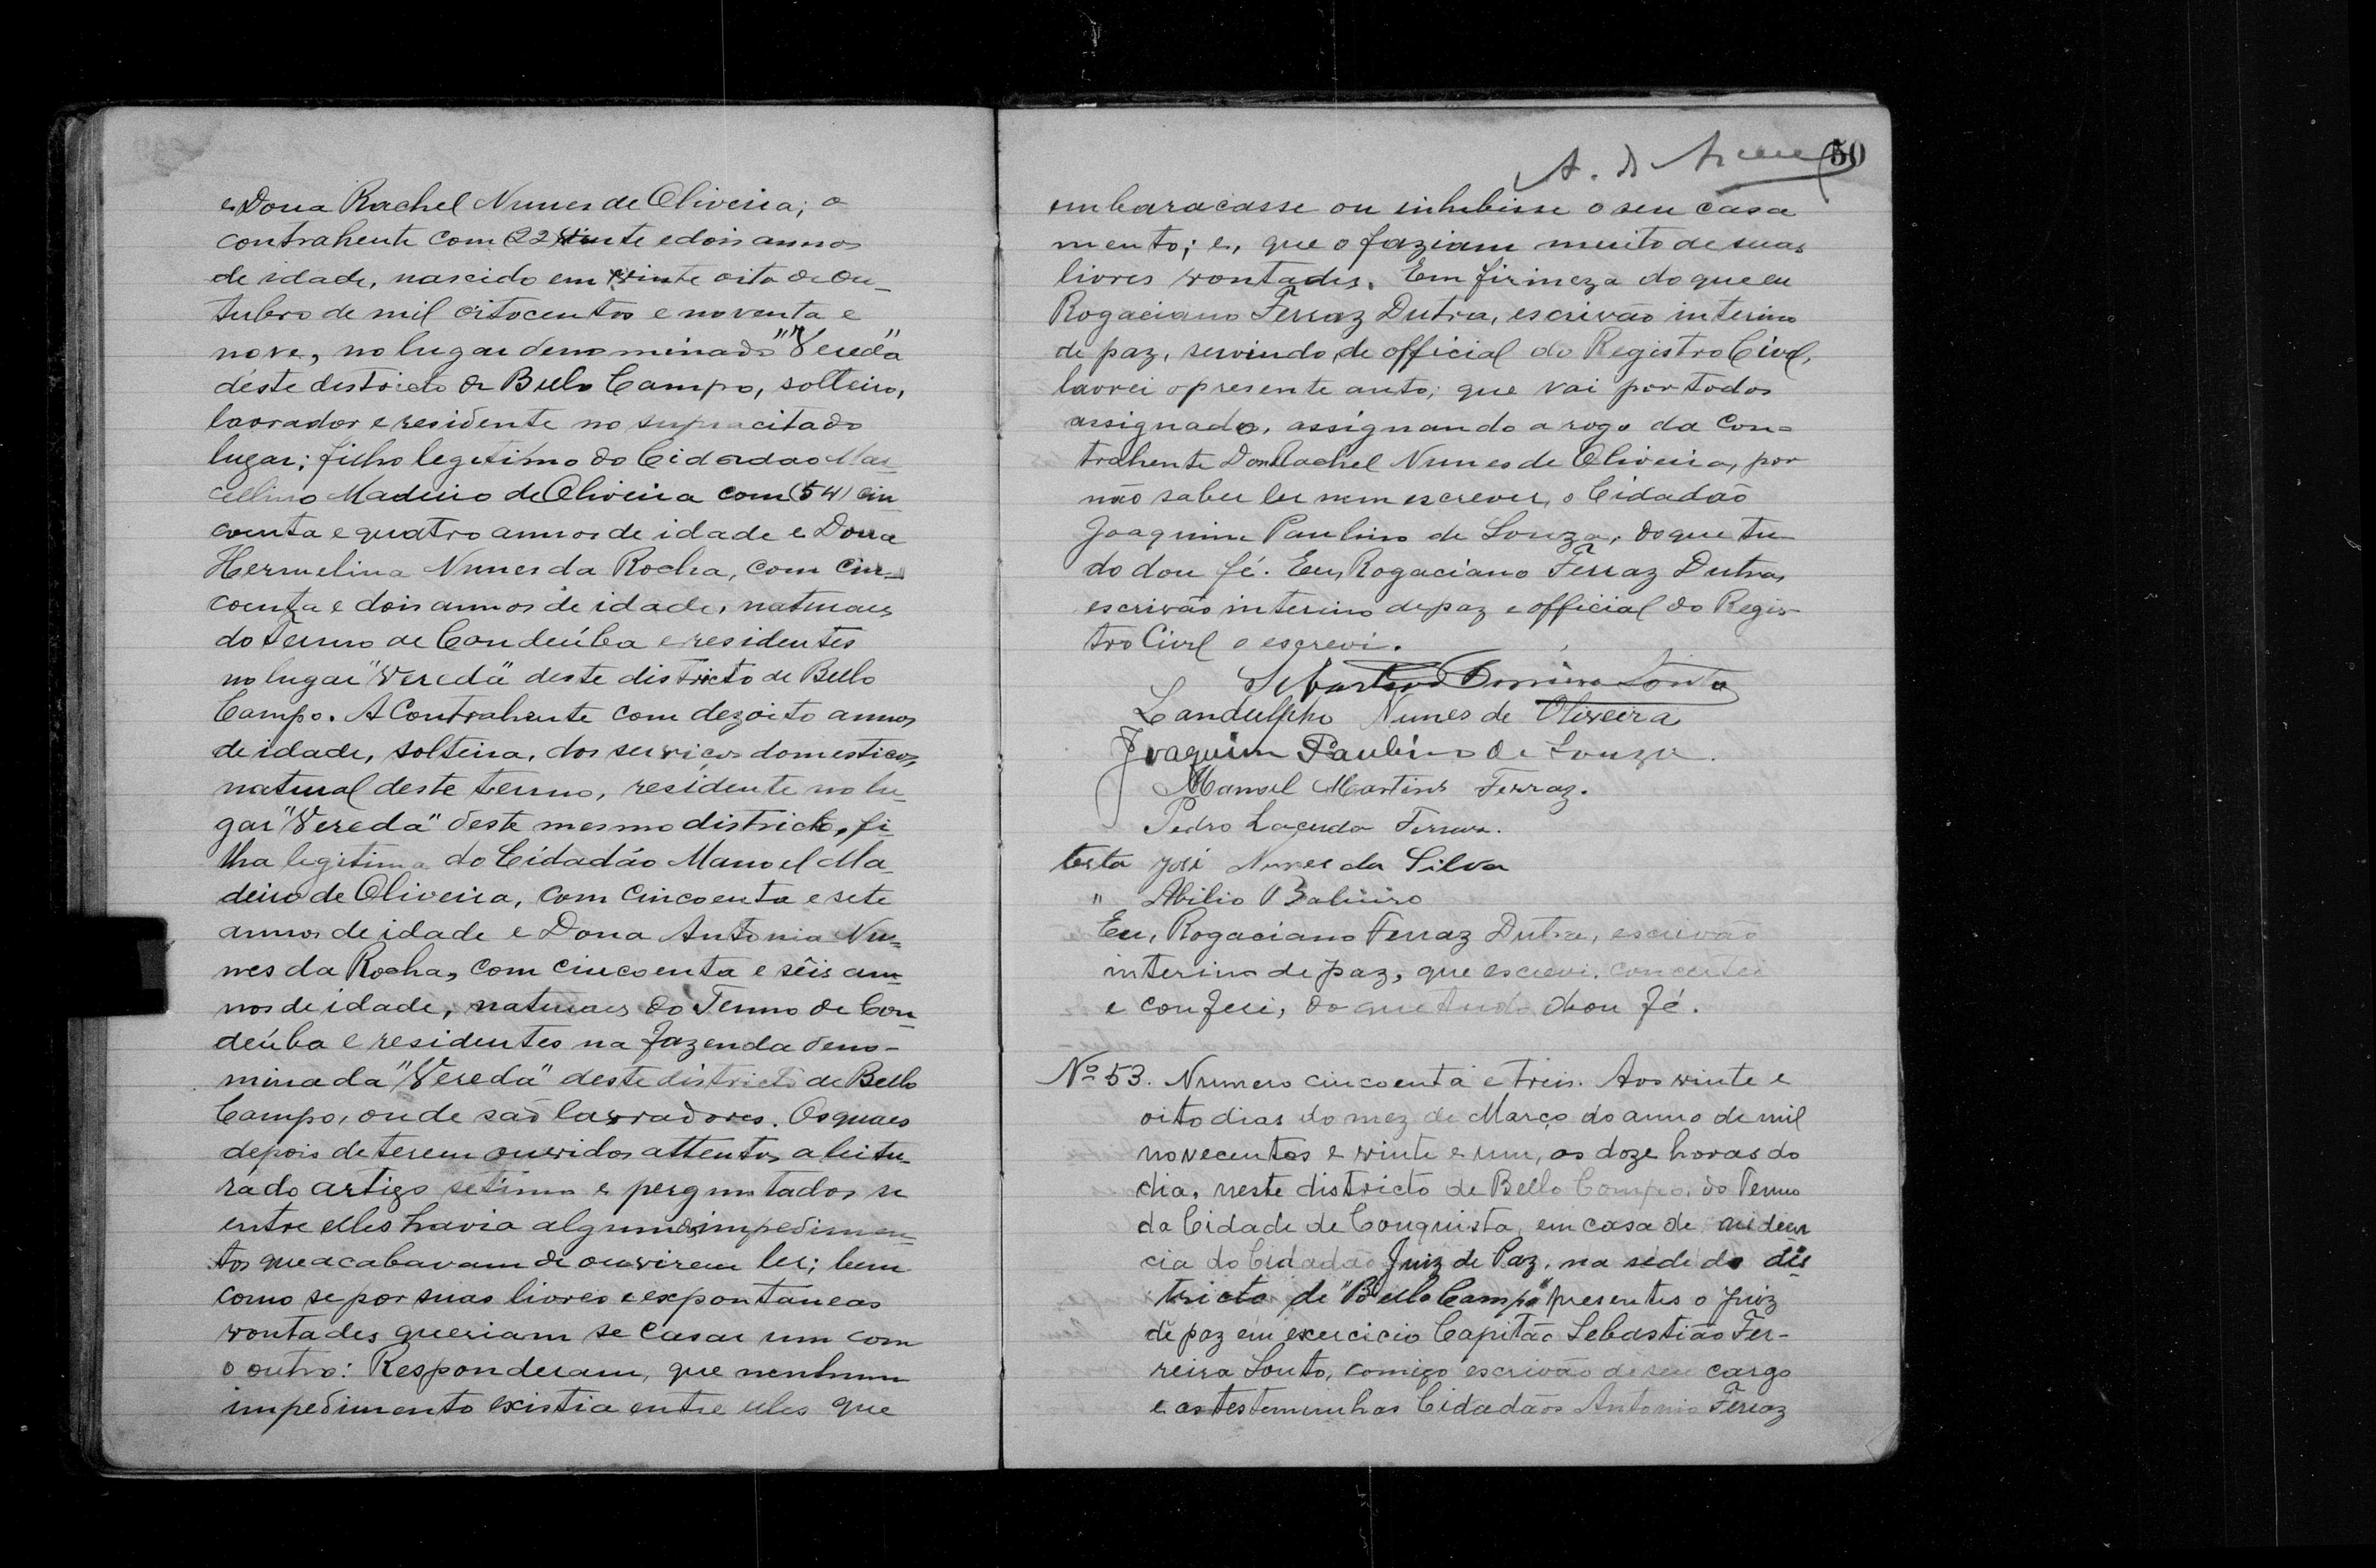 e Dona Rachel Nunes de Oliveira; o
contrahente com (22 vinte e dois annos
de idade, nascido em vinte oito de Ou-
tubro de mil oitocentos e noventa e
nove, no lugar denominado "Vereda"
déste districto de Bello Campo, solteiro,
lavrador e residente no supracitado
lugar; filho legitimo do Cidadão Mar-
cellino Madeiro de Oliveira com (54) cin
coenta e quatro annos de idade e Dona
Hermelina Nunes da Rocha, com cin-
coenta e dois annos de idade, naturaes
do Termo de Condeúba e residentes
no lugar "Vereda" deste districto de Bello
Campo. A Contrahente com dezoito annos
de idade, solteira, dos serviços domesticos,
natural deste termo, residente no lu-
gar "Vereda" deste mesmo districto, fi-
lha legitima do Cidadão Manoel Ma-
deiro de Oliveira, com cincoenta e sete
annos de idade e Dona Antonia Nu-
nes da Rocha, com cincoenta e sêis an-
nos de idade, naturaes do Termo de Con-
deúba e residentes na fazenda deno-
minada "Vereda" deste districto de Bello
Campo, onde saõ lavradores. Os quaes
depois de terem ouvidos attentos a leitu-
ra do artigo setimo e perguntados se
entre elles havia algum dos impedimen-
tos que acabavam de ouvirem ler; bem
como se por suas livres e expontáneas
vontades queriam se casar um com
o outro: Responderam, que nenhum
impedimento existia entre elles que
50
embaracasse ou inhibisse o seu casa
mento; e, que o faziam muito de suas
livres vontades. Em firmeza do que eu
Rogaciano Ferraz Dutra, escrivão interino
de paz, servindo de official do Registro Civil,
lavrei o presente auto; que vai por todos
assignado, assignando a rogo da Con-
trahente Dona Rachel Nunes de Oliveira, por
não saber ler nem escrever, o Cidadão
Joaquim Paulino de Souza, do que tu-
do dou fé. Eu, Rogaciano Ferraz Dutra,
escrivão interino de paz e official do Regis-
tro Civil o escrevi.
Sebastião Ferreira Souto
Landulpho Nunes de Oliveira
Joaquim Paulino de Souza.
Manoel Martins Ferraz.
Pedro Lacerda Ferraz.
testa José Nunes da Silva
" Abilio Balieiro
Eu, Rogaciano Ferraz Dutra, escrivão
interino de paz, que escrevi, concertei
e conferi, do que tudo dou fé.
Nº 53. Numero cincoenta e treis. Aos vinte e
oito dias do mez de Março do anno de mil
novecentos e vinte e um, as doze horas do
dia, neste districto de Bello Campo, do Termo
da Cidade de Conquista, em casa de residen
cia do Cidadão Juiz de Paz, na séde do dis
tricto de "Bello Campo" presentes o Juiz
de paz em exercicio Capitão Sebastião Fer-
reira Souto, comigo escrivão de seu cargo
e as testeminhas Cidadãos Antonio Ferraz